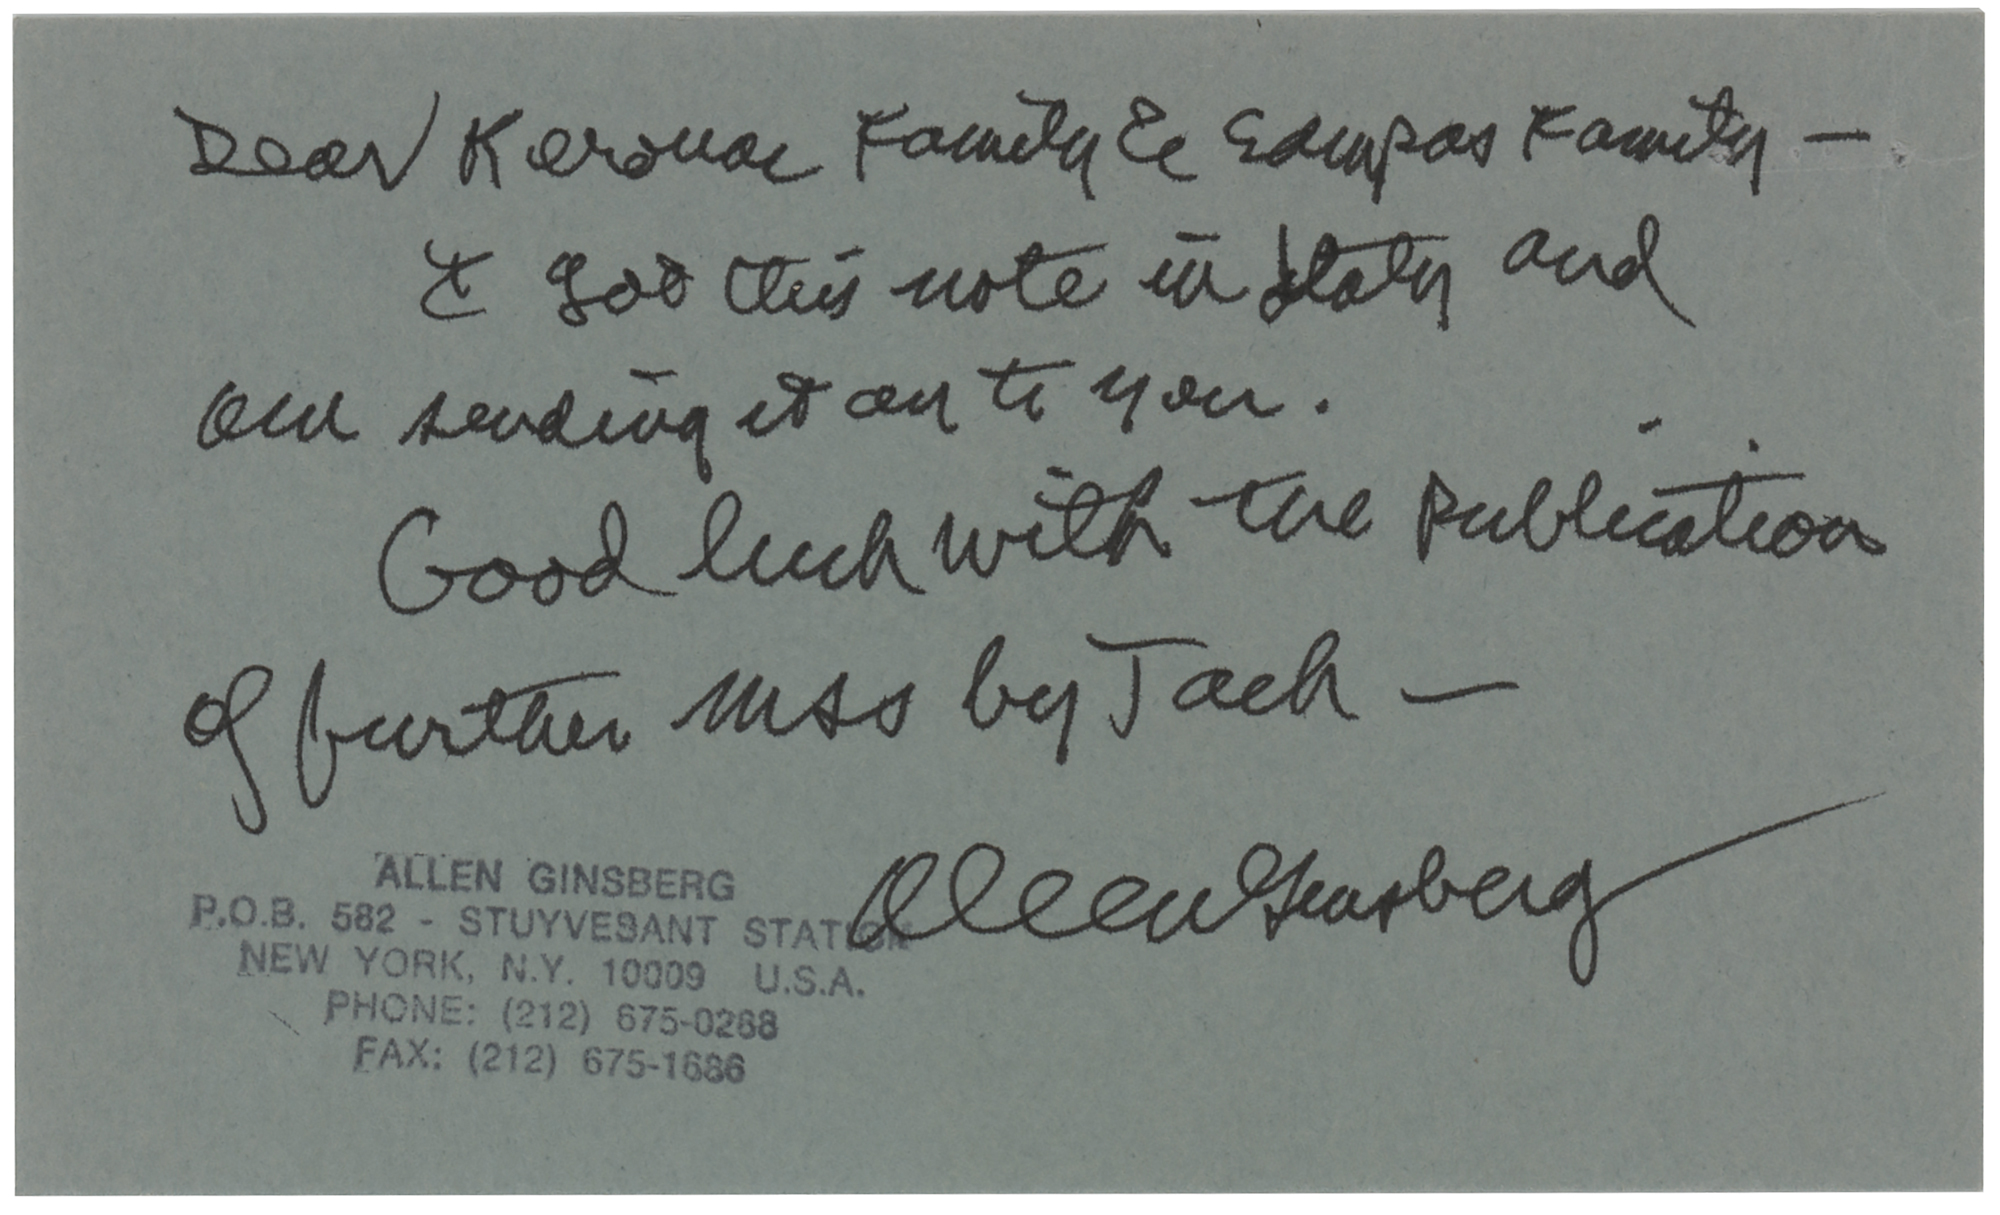 Dear Kerouac Family & Sampas Family —
I got this note in Italy and
am sending it on to you.
Good luck with the publication
of further mss by Jack —
Allen Ginsberg
ALLEN GINSBERG
P.O.B. 582 - STUYVESANT STATION
NEW YORK, N.Y. 10009 U.S.A.
PHONE: (212) 675-0268
FAX: (212) 675-1686